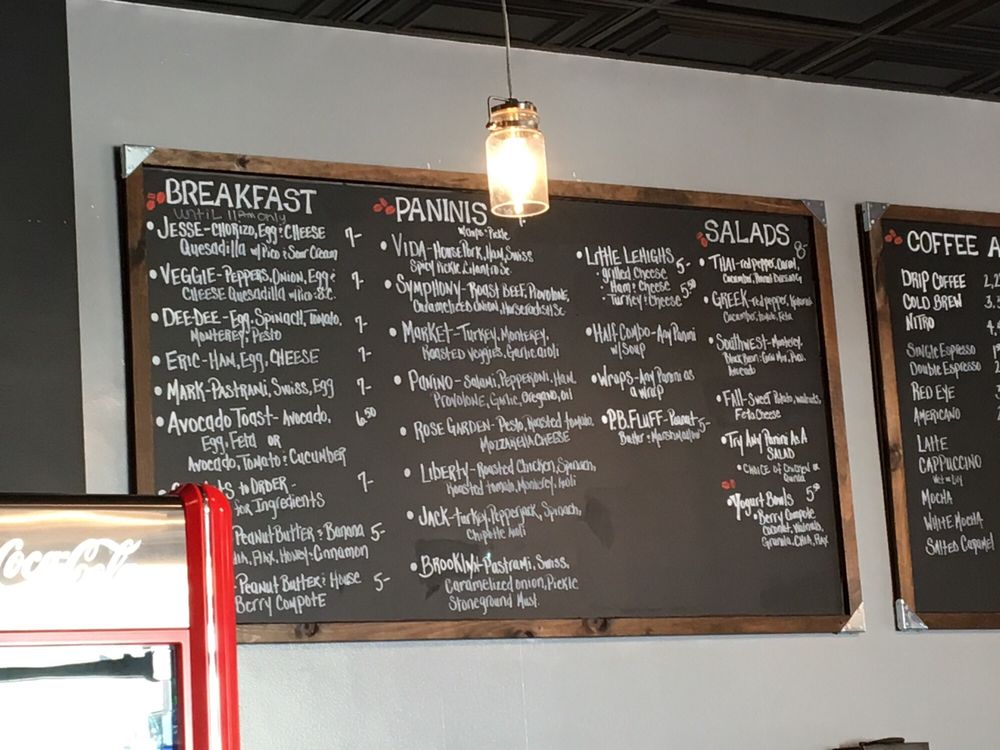 BREAKFAST
until 11am only
JESSE-CHORIZO, Egg & CHEESE 7-
Quesadilla w/Pico & Sour Cream
VEGGIE-PEPPERS, ONION, Egg & 7-
CHEESE Quesadilla w/Pico & S.C.
DEE-DEE-Egg, Spinach, Tomato, 7-
Monterey, Pesto
ERIC-HAM, Egg, CHEESE 7-
MARK-PASTRAMI, Swiss, Egg 7-
Avocado Toast-Avocado, 6.50
Egg, Feta OR
Avocado, Tomato & Cucumber
to ORDER- 7-
for Ingredients
Peanut Butter & Banana 5-
Flax, Honey & Cinnamon
Peanut Butter & House 5-
Berry Compote
PANINIS
w/Chips & Pickle
VIDA-House Pork, Ham, Swiss
Spicy Pickle
SYMPHONY-Roast Beef, Provolone,
Caramelized Onion, Horseradish Sc
MARKET-Turkey, Monterey,
Roasted Veggies, Garlic aioli
PANINO-Salami, Pepperoni, Ham
Provolone, Garlic, Oregano, Oil
ROSE GARDEN-Pesto, Roasted tomato,
MOZZARELLA CHEESE
LIBERTY-Roasted Chicken, Spinach,
Roasted tomato, Monterey, Aioli
JACK-Turkey, Pepperjack, Spinach,
Chipotle Aoli
BROOKLYN-Pastrami, Swiss,
Caramelized onion, Pickle
Stoneground Must.
LITTLE LEHIGHS
grilled Cheese 5-
Ham & Cheese
Turkey & Cheese 5.50
HALF COMBO-Any Panini
w/Soup
WRAPS-Any Panini as
a wrap
P.B. FLUFF-Peanut 5-
Butter & Marshmallow
SALADS
8-
THAI-red pepper, Carrot,
Cucumber, Peanut Dressing
GREEK-red pepper, Kalamata
Cucumber, tomato, Feta
Southwest-Monterey,
Black Bean & Corn Mix, Pico,
Avocado
FALL-Sweet Potato, walnuts,
Feta Cheese
Try Any Panini As A
SALAD
CHOICE OF CHICKEN or
Quinoa
Yogurt Bowls 5.50
Berry Compote
Coconut, Walnuts,
Granola, CHIA, Flax
COFFEE A
DRIP COFFEE 2.
COLD BREW 3.
NITRO 4.
Single Espresso
Double Espresso
RED EYE
AMERICANO
LATTE
CAPPUCCINO
Wet or Dry
MOCHA
WHITE MOCHA
Salted Caramel
Coca-Cola